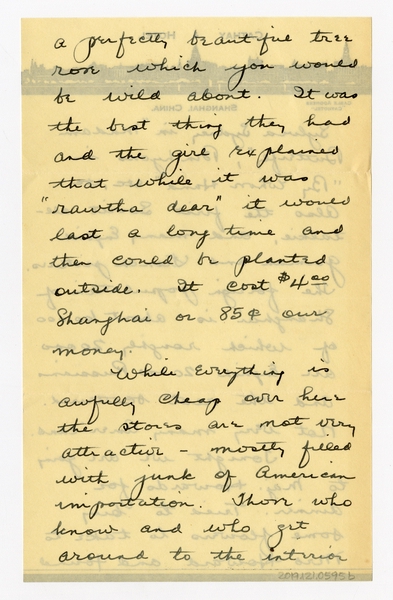 a perfectly beautiful tree
rose which you would
be wild about. It was
the best thing they had
and the girl explained
that while it was
"rawtha dear" it would
last a long time and
then could be planted
outside. It cost $4.00
Shanghai or 85¢ our
money.
While everything is
awfully cheap over here
the stores are not very
attractive - mostly filled
with junk of American
importation. Those who
know and who get
around to the interior
2019.12.1.0595b